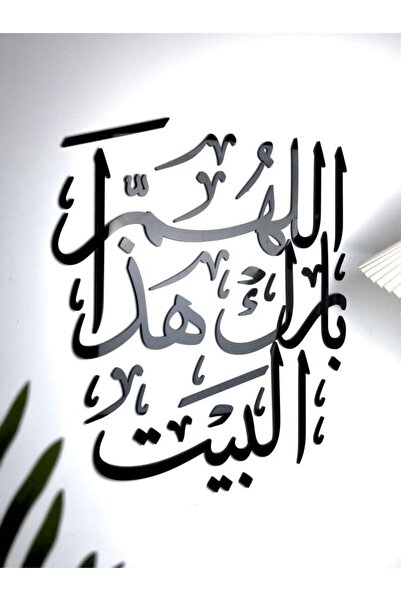 اللهمّ
بارك هذا
البيت